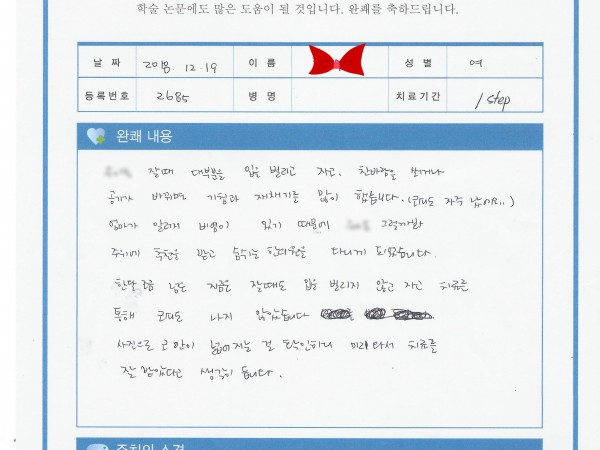 학술 논문에도 많은 도움이 될 것입니다. 완쾌를 축하드립니다.
날 짜 2018. 12. 19 이 름 성 별 여
등록번호 2685 병 명 치료기간 1 step
완쾌 내용
잘때 대부분을 입을 벌리고 자고, 찬바람을 쐬거나
공기가 바뀌면 기침과 재채기를 많이 했습니다. (코피도 자주 났어요..)
엄마가 알러지 비염이 있기 때문에 그럴까봐
주위에 추천을 받고 숨쉬는 한의원을 다니게 되었습니다.
한달 조금 넘도 지금은 잘때도 입을 벌리지 않고 자고 치료를
통해 코피도 나지 않았습니다
사진으로 코 안이 넓어지는 걸 확인하니 미리 와서 치료를
잘 받았다고 생각이 듭니다.
주치의 소견